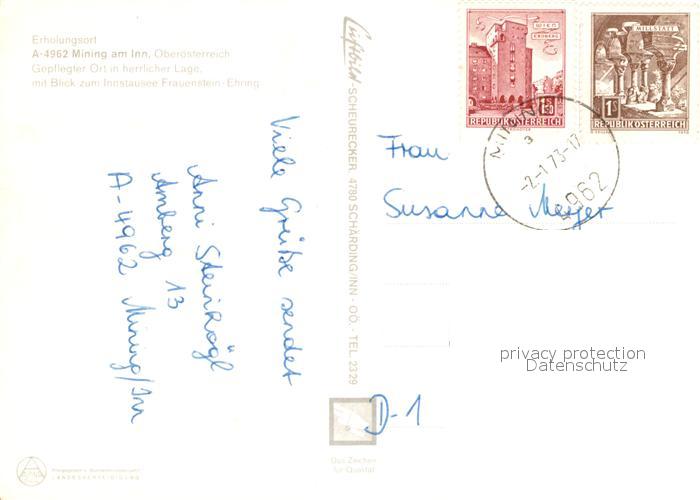 Erholungsort
A-4962 Mining am Inn, Oberösterreich
Gepflegter Ort in herrlicher Lage,
mit Blick zum Innstausee Frauenstein-Ehring
Viele Grüße sendet
Anni Steinkögl
Amberg 13
A-4962 Mining/Inn
Luftbild-SCHEURECKER, 4780 SCHÄRDING/INN - OÖ. - TEL 2329
WIEN
ERDBERG
REPUBLIK ÖSTERREICH
MILLSTATT
1S
REPUBLIK ÖSTERREICH
-2-1.73-17
4962
Frau
Susanne Meyer
privacy protection
Datenschutz
D-1
Das Zeichen
für Qualität
LANDESVERTEIDIGUNG